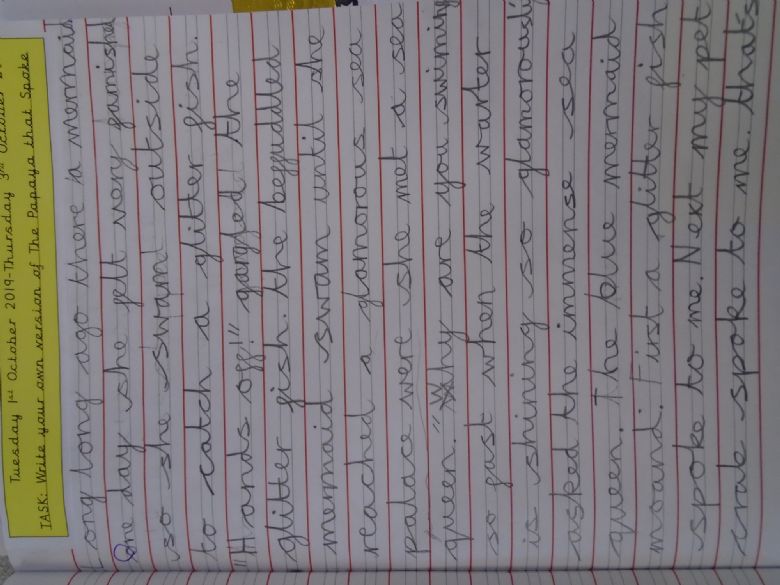 Tuesday 1st October 2019-Thursday 3rd October
TASK: Write your own version of The Papaya that Spoke
Long long ago there a mermaid
One day she felt very famished
so she swam outside
to catch a glitter fish.
"Hands off!" gargled the
glitter fish. the beffuddled
mermaid swam until she
reached a glamorous sea
palace were she met a sea
queen. "Why are you swiming
so fast when the warter
is shining so glamorously
asked the immense sea
queen. The blue mermaid
moand. First a glitter fish
spoke to me. Next my pet
crab spoke to me. thats